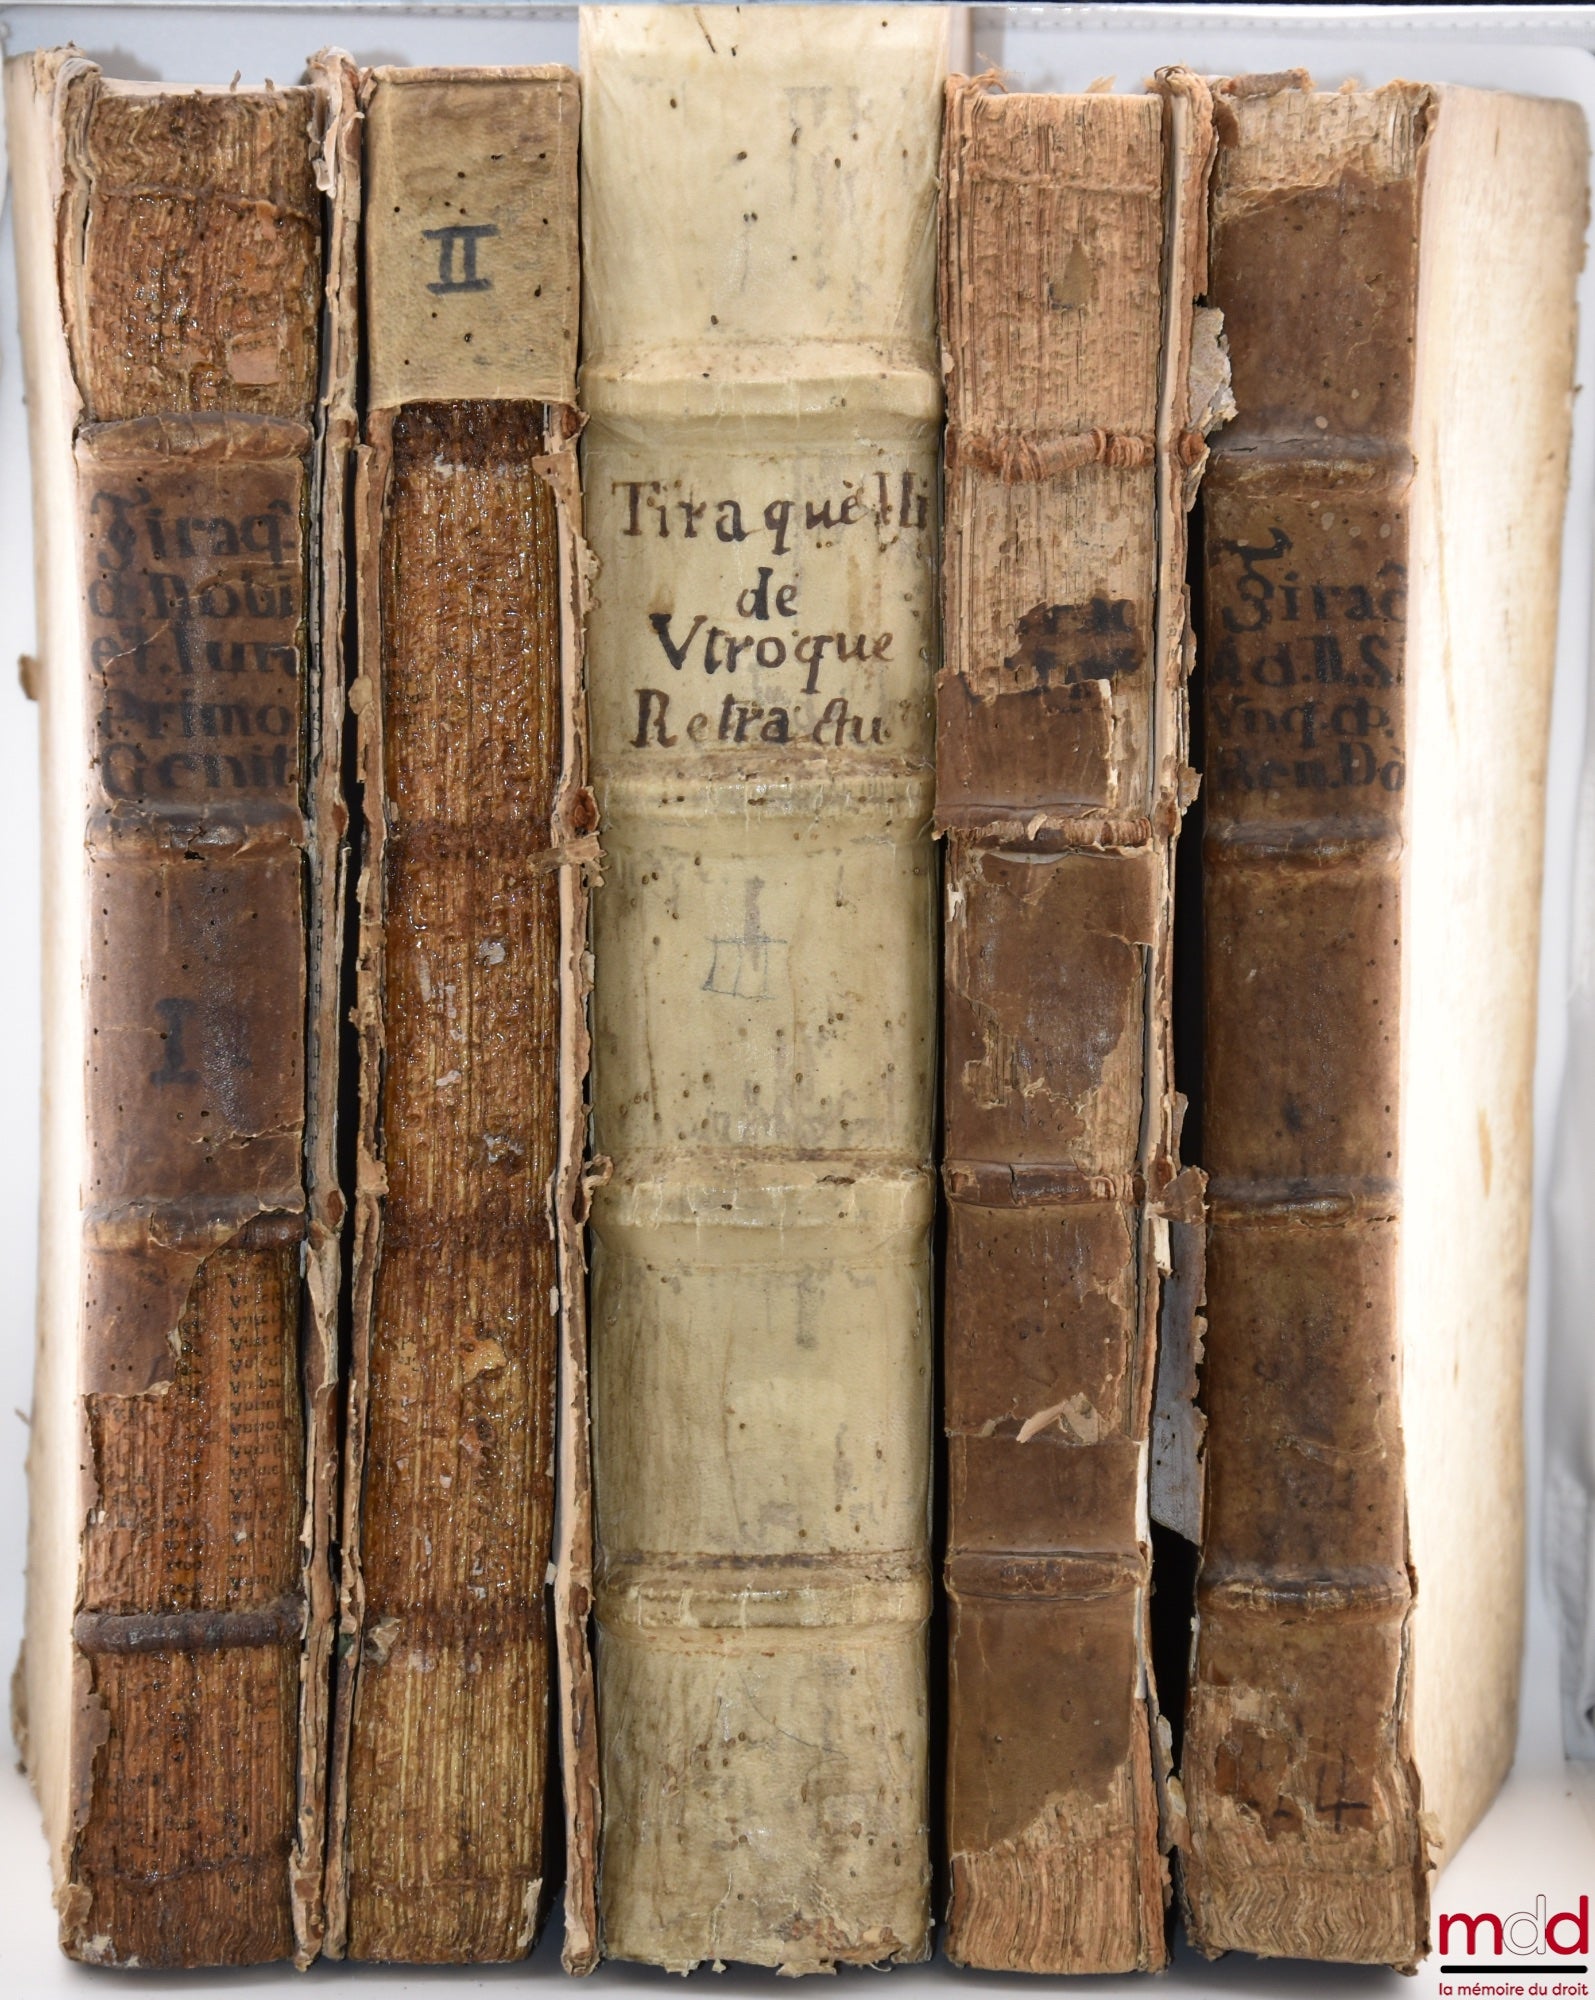 Tiraq̂.
d. Nobi
et. Iure
Primo
Genit
I
II
Tiraquèlli
de
Vtroque
Retractu
Tiraq̂
Ad. L. Si.
Vnq. d̂.
Reu. Dò
4
mdd
la mémoire du droit